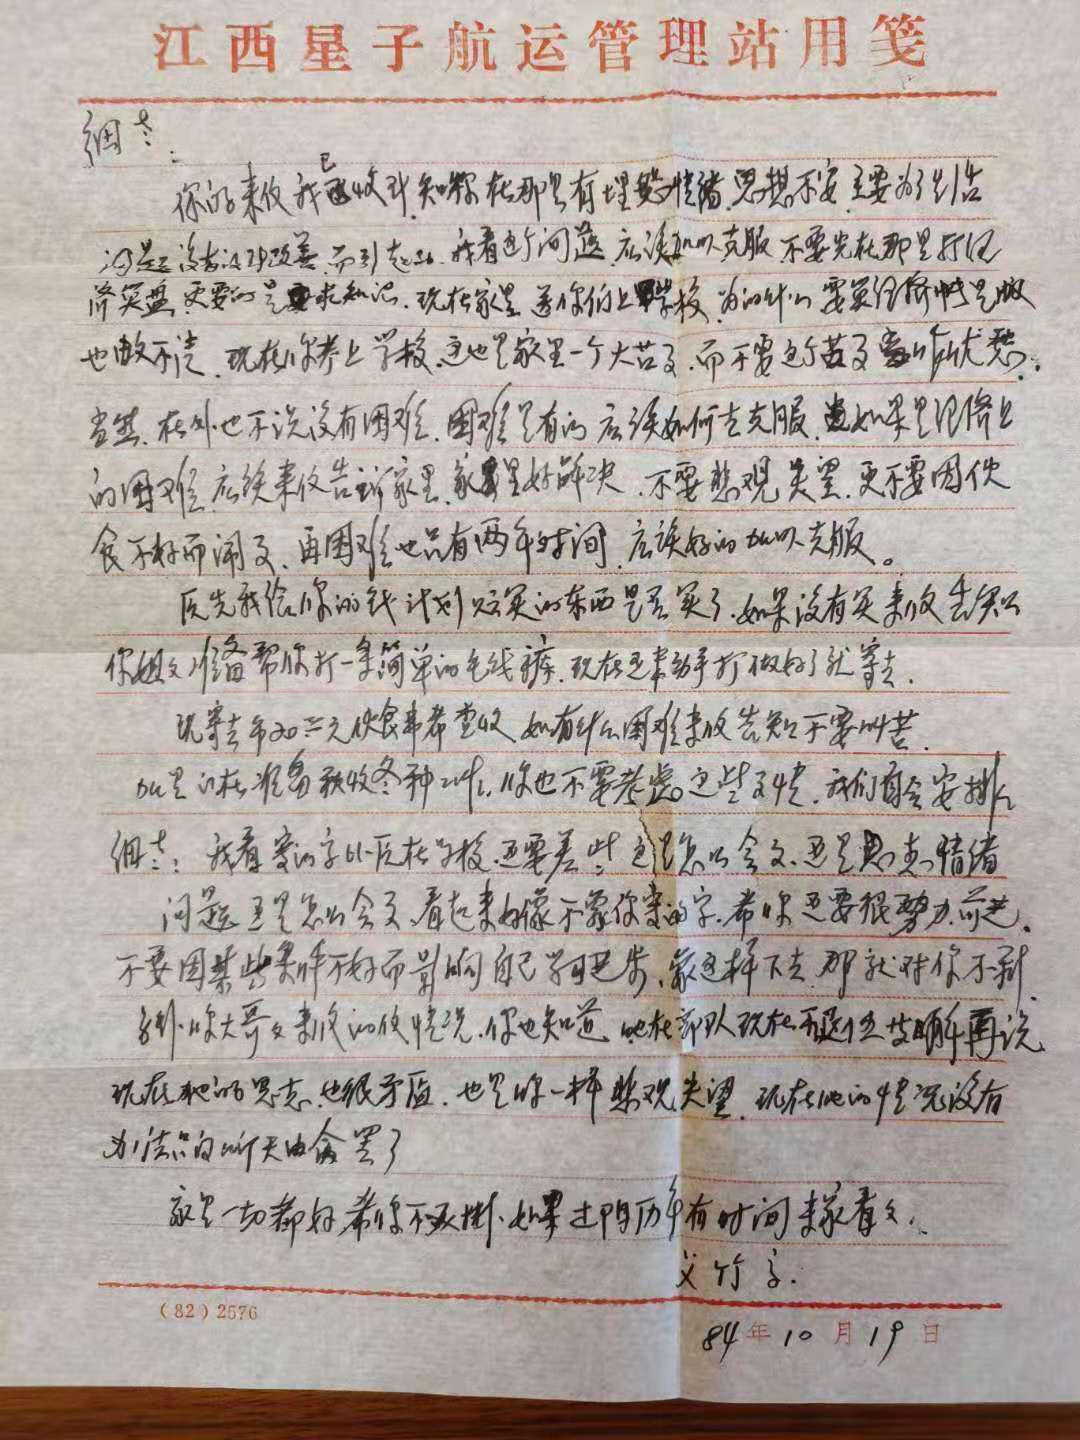 江西星子航运管理站用笺
细
你的来收我已收到,知你在那里有埋怨情绪,思想不安,主要为了
问题没有得到改善,而引起的,我看这个问题,应该加以克服,不要光在那里打经
济算盘,更要的是求知识,现在家里送你们上学校,为的什么,要算经济
也做不,现在你考上学校,这也是家里一个大,而不要这个作优愁,
当然,在外也不说没有困难,困难是有的,应该如何去克服,如果是经济上
的困难,应该来收告诉家里,家里好解决,不要悲观失望,更不要因伙
食不好而闹,再困难也只有两年时间,应该好的加以克服。
原先我给你的钱计划买的东西是否买了,如果没有买来收告知
你姐准备帮你打一条简单的毛线裤,现在还未动手打做好了就寄去,
现寄去币20元伙食费希查收,如有什么困难来收告知不要叫苦,
家里正在准备秋收冬种工作,你也不要考虑这些,我们自会安排
细:我看寄的字以后在学校还要差些,这是怎么会,还是思想情绪
问题还是怎么会,看起来好像不象你的字,希你还要很努力前进,
不要因某些条件不好而影响自己学习进步,象这样下去,那就对你不利,
另外,你大哥来收的情况,你也知道,他在部队现在再说
现在他的思想也很矛盾,也是你一样悲观失望,现在他的情况没有
办法只有听天由命罢了
家里一切都好希你不要挂,如果过阳历年有时间来家看,
父竹
(82)2576
84年10月19日